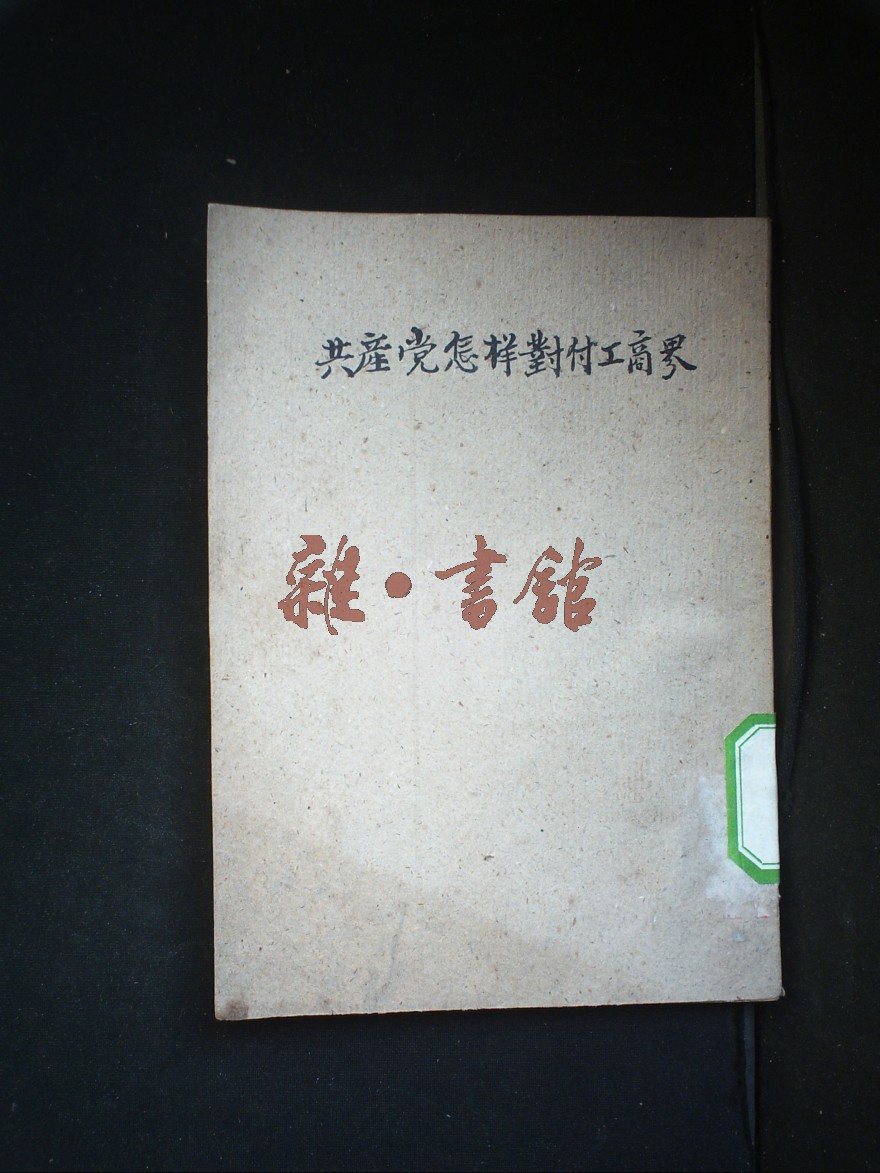 共產党怎样對付工商界
雜·書館